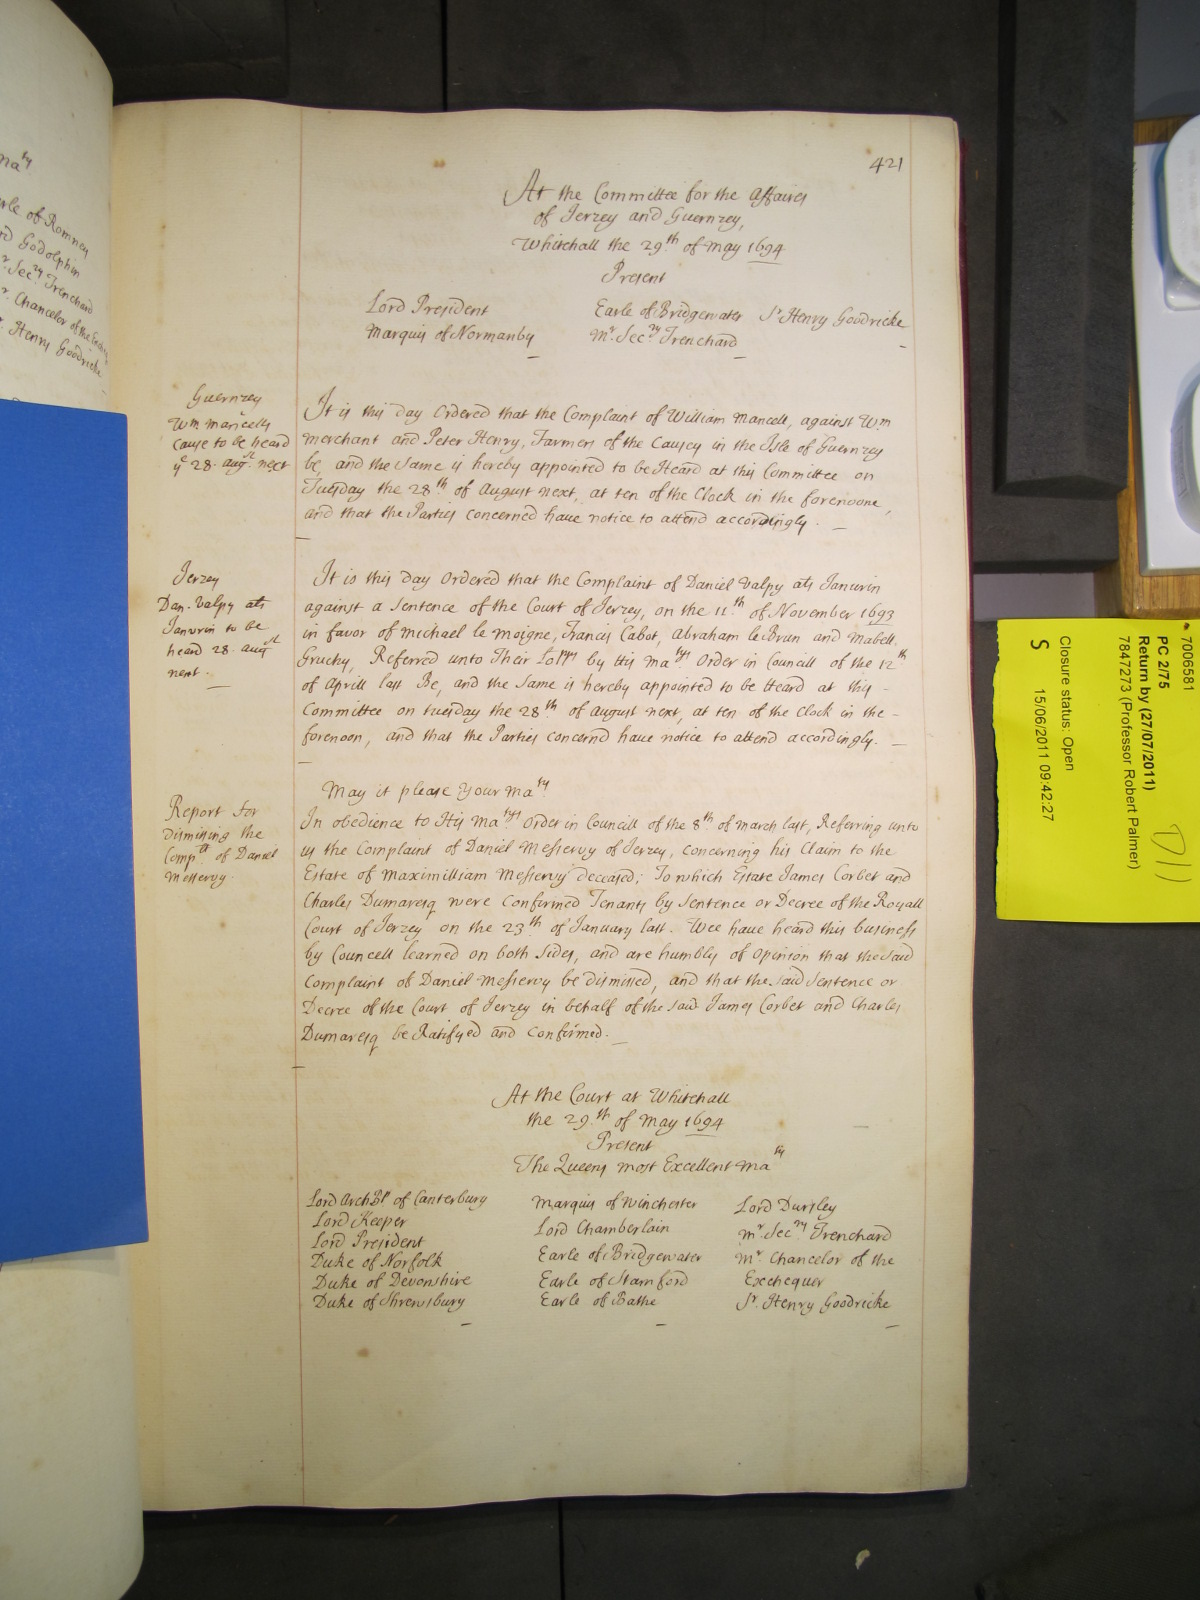 421
At the Committee for the Affaires
of Jerzey and Guernzey,
Whitehall the 29.th of May 1694
Present
Lord President
Marquis of Normanby
Earle of Bridgewater
Mr. Secry Trenchard
Sr Henry Goodricke
Guernzey
Wm. Mancells
cause to be heard
ye 28. augst. next
It is this day Ordered that the Complaint of William Mancell, against Wm
Merchant and Peter Henry, Farmers of the Causey in the Isle of Guernzey
be, and the same is hereby appointed to be Heard at this Committee on
Tuesday the 28th of August next, at ten of the Clock in the forenoone,
and that the Parties concerned have notice to attend accordingly.
Jerzey
Dan. Valpy ats
Janvrin to be
heard 28. augst
next.
It is this day Ordered that the Complaint of Daniel Valpy ats Janvrin
against a Sentence of the Court of Jerzey, on the 11.th of November 1693
in favor of Michael le Moigne, Francis Cabot, Abraham le Brun and Mabell
Gruchy, Referred unto Their Lopps by His Matys Order in Councill of the 12th
of Aprill last Be, and the same is hereby appointed to be Heard at this -
Committee on tuesday the 28th of August next, at ten of the Clock in the -
forenoon, and that the Parties concernd have notice to attend accordingly.
May it please Your Maty
Report for
dismissing the
Compt of Daniel
Messervy.
In obedience to His Matys Order in Councill of the 8th of March last, Referring unto
us the Complaint of Daniel Messervy of Jerzey, concerning his Claim to the
Estate of Maximilliam Messervy deceased; To which Estate James Corbet and
Charles Dumaresq were Confirmed Tenants by Sentence or Decree of the Royall
Court of Jerzey on the 23th of January last. Wee have heard this business
by Councell learned on both sides, and are humbly of Opinion that the said
Complaint of Daniel Messervy be dismissed, and that the said Sentence or
Decree of the Court of Jerzey in behalf of the said James Corbet and Charles
Dumaresq be Ratifyed and Confirmed.
At the Court at Whitehall
the 29.th of May 1694
Present
The Queens most Excellent Maty
Lord ArchBp of Canterbury
Lord Keeper
Lord President
Duke of Norfolk
Duke of Devonshire
Duke of Shrewsbury
Marquis of Winchester
Lord Chamberlain
Earle of Bridgewater
Earle of Stamford
Earle of Bathe
Lord Dursley
Mr. Secry Trenchard
Mr. Chancelor of the
Exchequer
Sr. Henry Goodricke
Maty
Earle of Romney
Lord Godolphin
Mr. Secry Trenchard
Mr. Chancelor of the
Sr. Henry Goodricke
7006581
PC 2/75
Return by (27/07/2011)
7847273 (Professor Robert Palmer)
Closure status: Open
S 15/06/2011 09:42:27